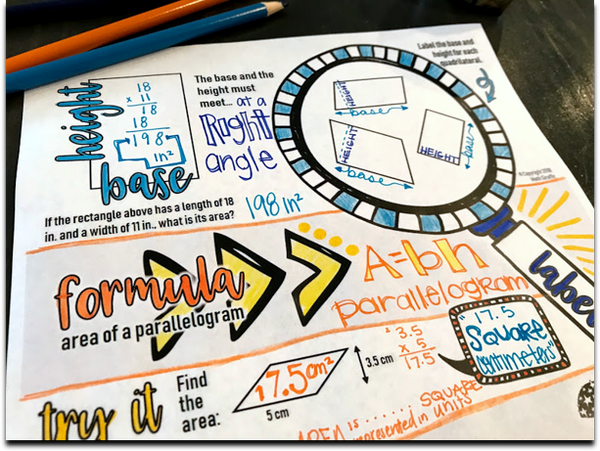 height
18
x 11
18
18
198
in²
base
The base and the
height must
meet... at a
Right
angle
Label the base and
height for each
quadrilateral.
HEIGHT
base
HEIGHT
base
HEIGHT
base
If the rectangle above has a length of 18
in. and a width of 11 in., what is its area? 198 in²
label
formula
area of a parallelogram
A=bh
parallelogram
try it
Find
the
area:
17.5cm²
5 cm
3.5 cm
2
3.5
x 5
17.5
"17.5
SQUARE
centimeters"
is ...... SQUARE
represented in units